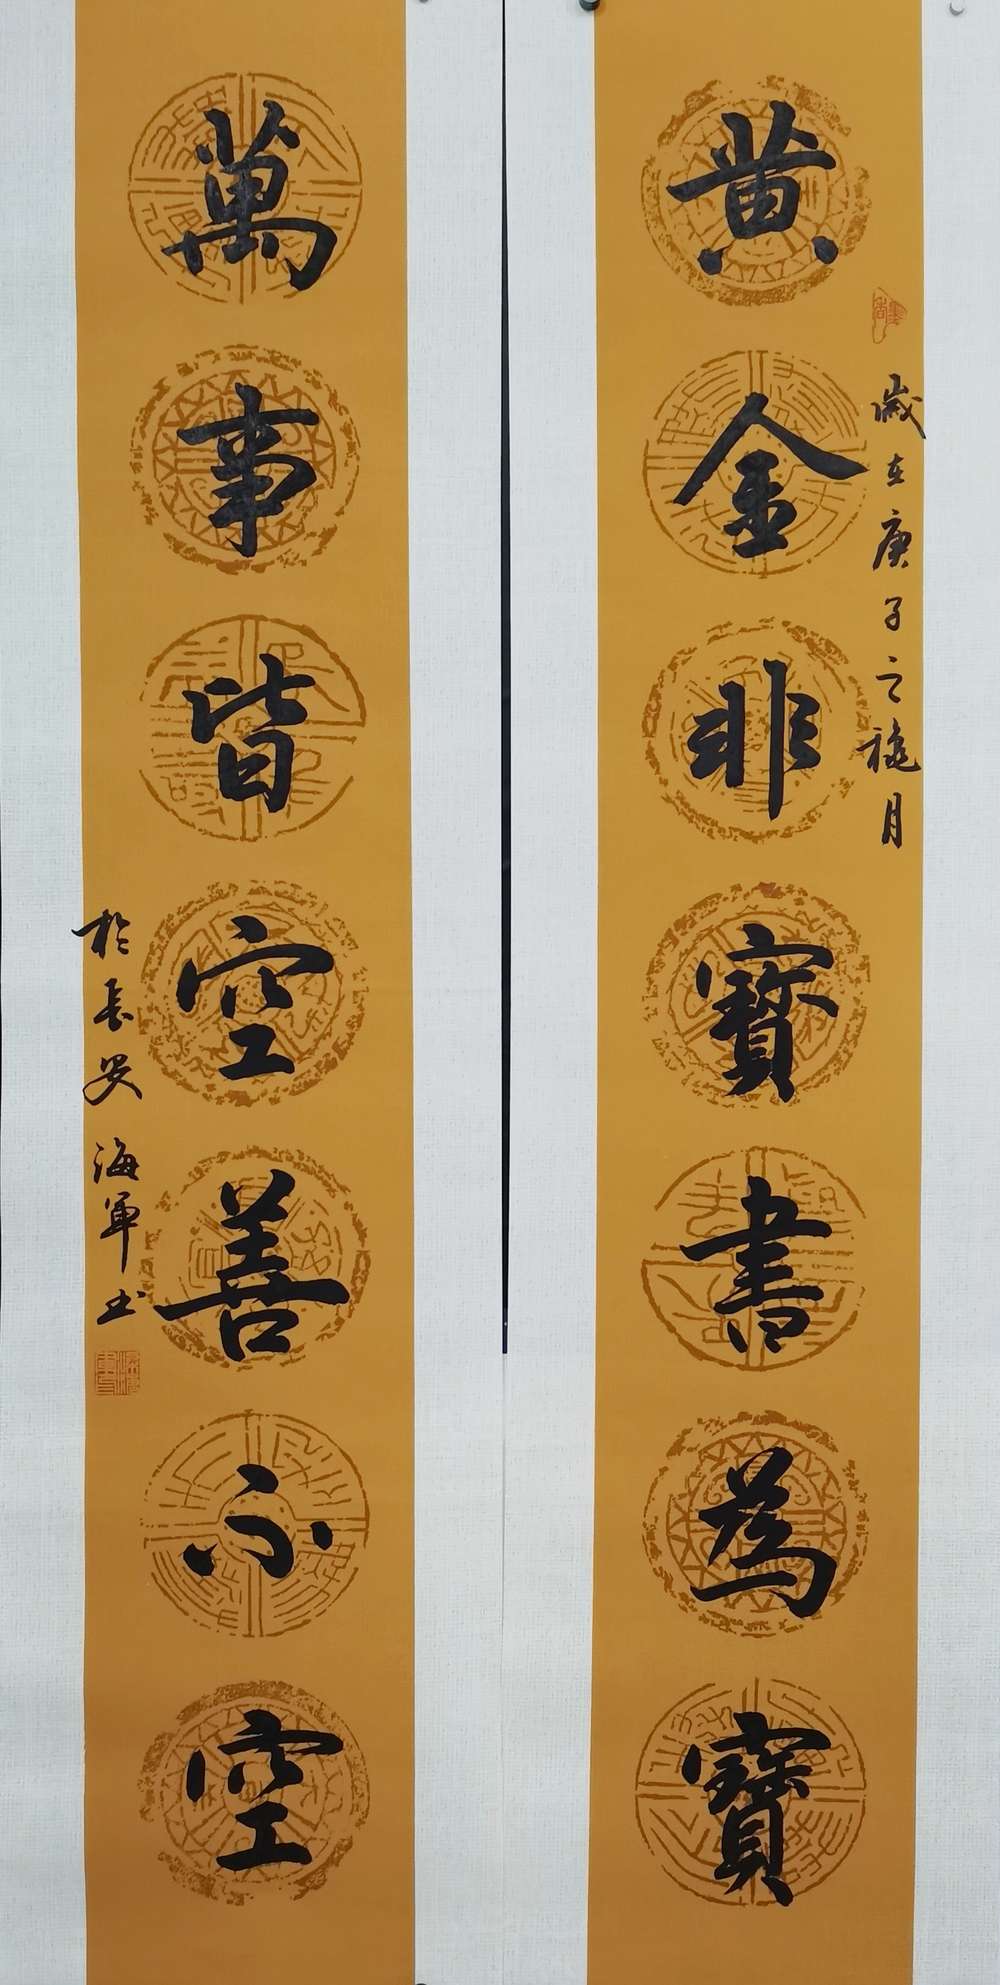 黄金非寳書為寳
歲在庚子之穐月
萬事皆空善不空
於長安海軍书